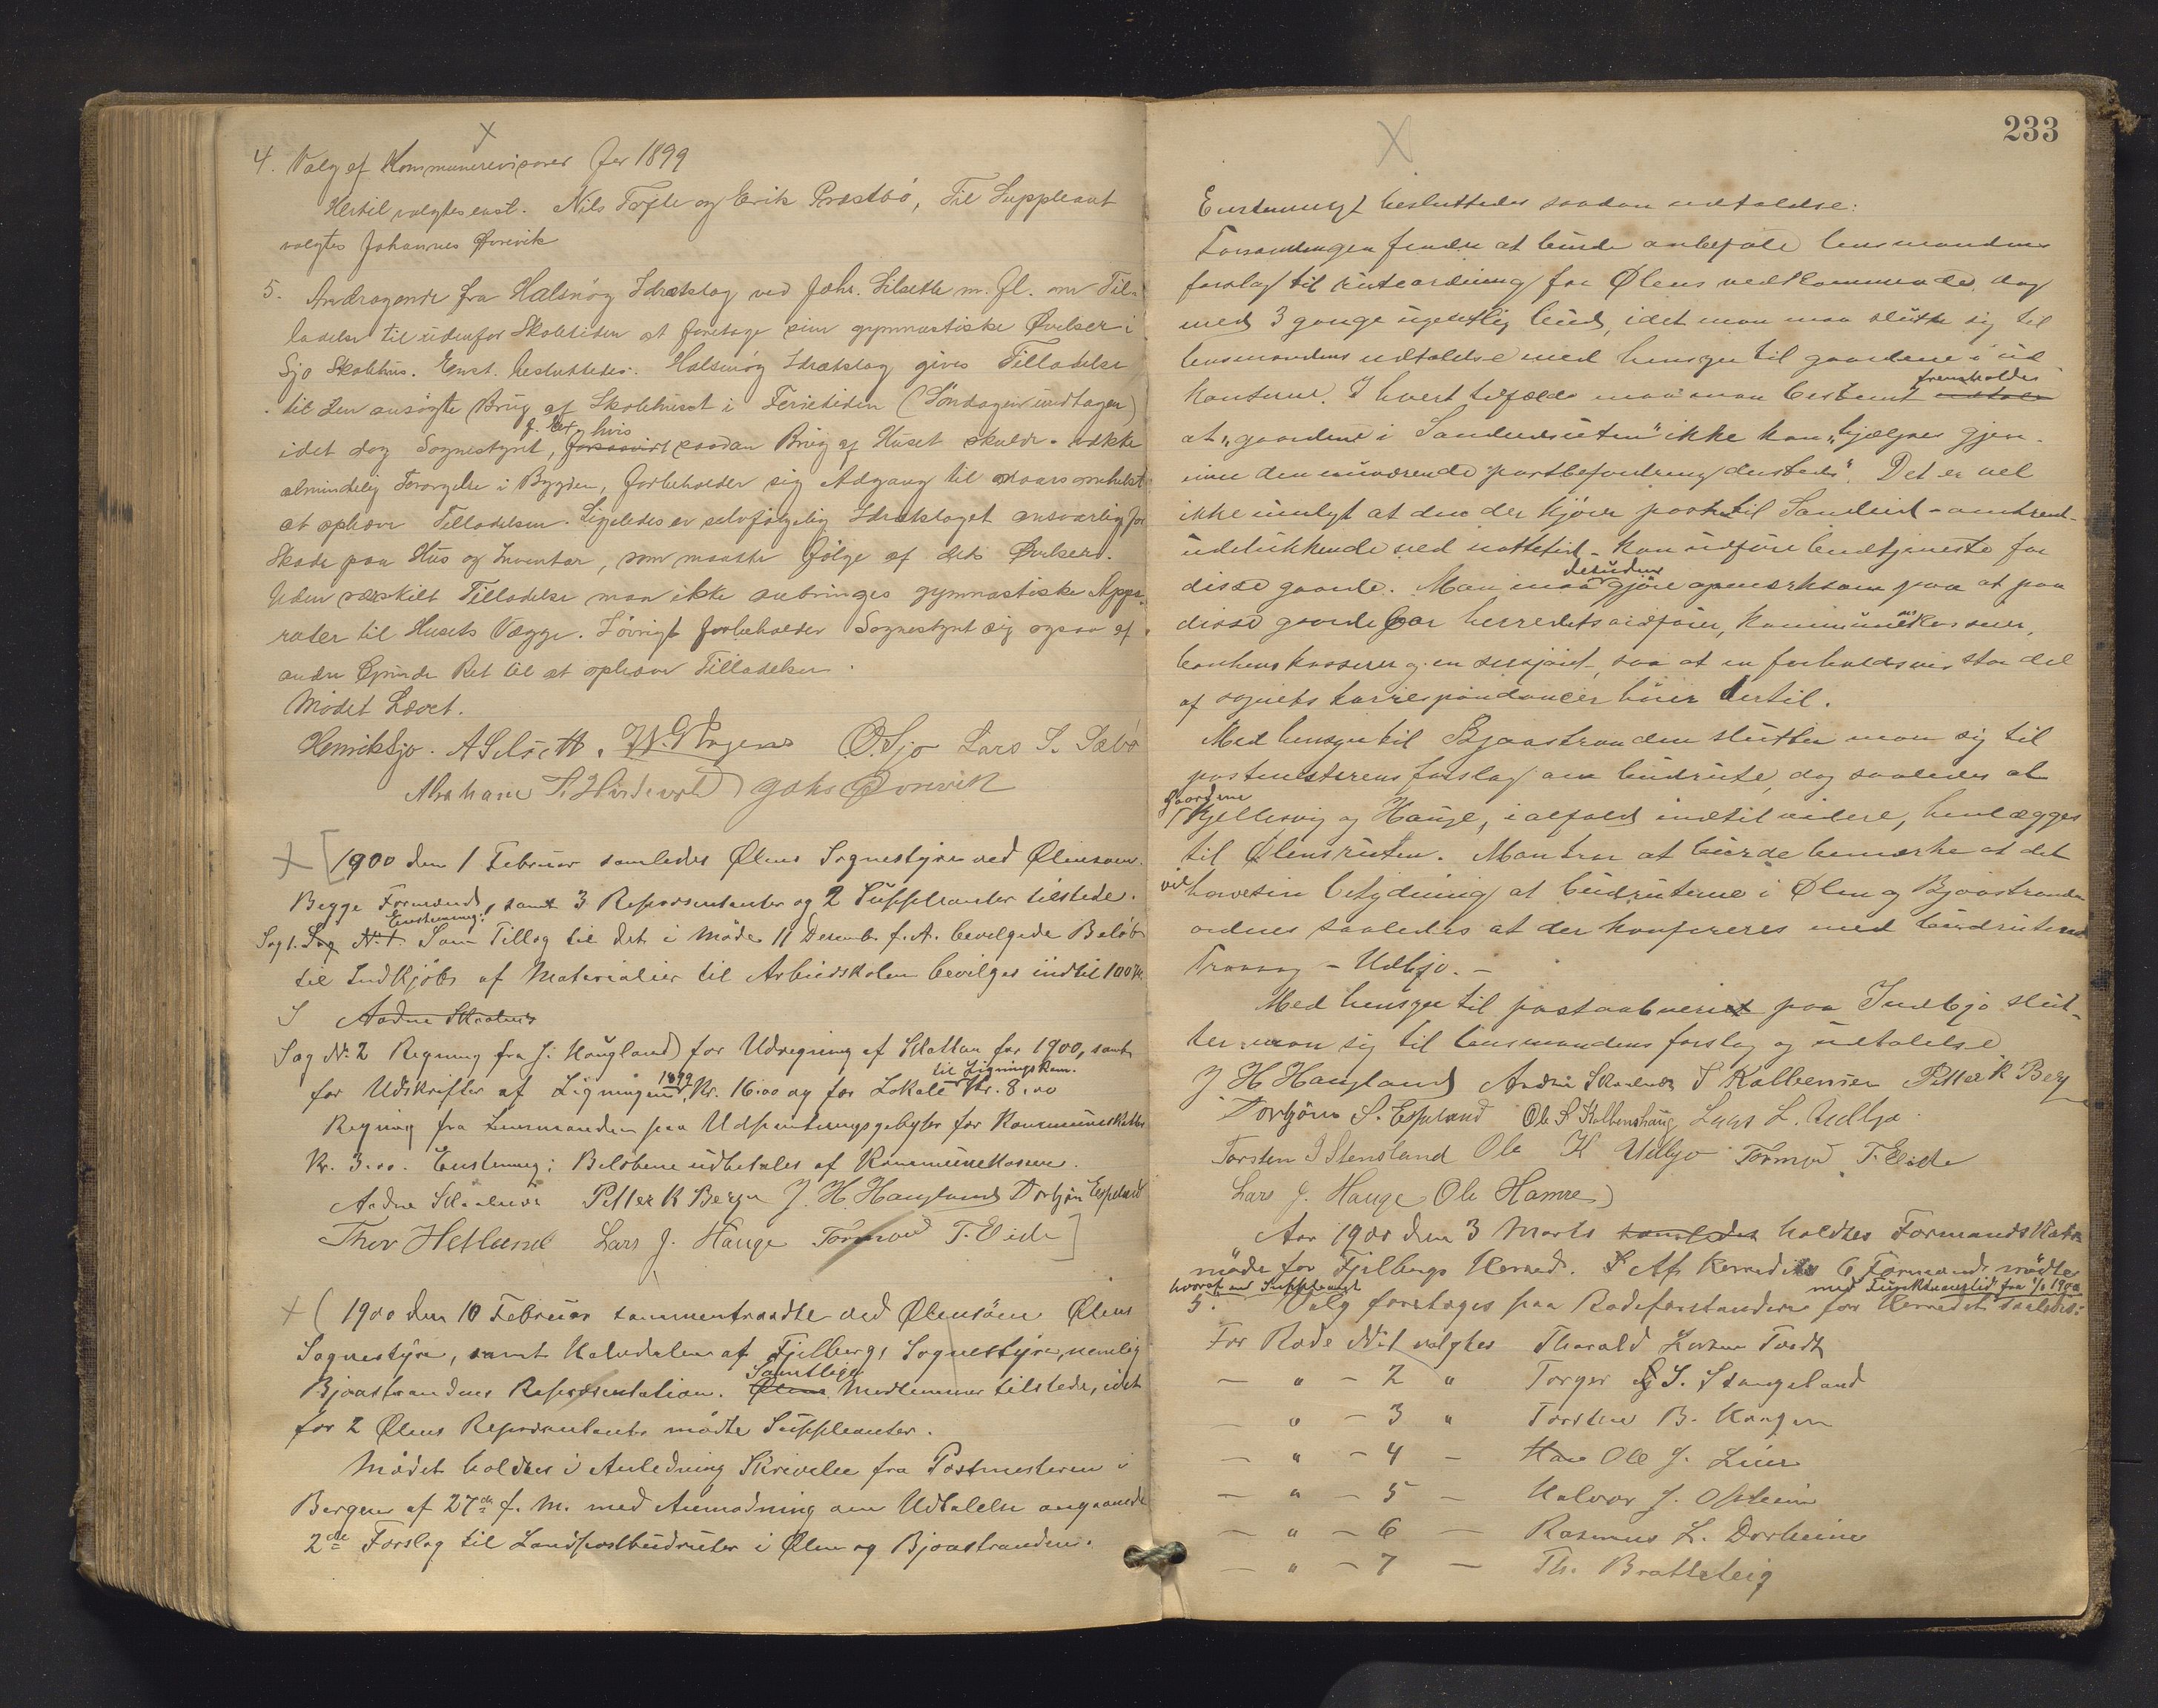 4. Valg af Kommunerevisorer for 1899
Hertil valgtes enst. Nils Tofte og Erik Præstbö, Til Suppleant
valgtes Johannes Ørevik
5. Andragende fra Halsnög Idrætslag ved Johs. m. fl. om Til-
ladelse til udenfor Skoletiden at foretage sine gymnastiske Øvelser i
Sjo Skolehus. Enst. besluttedes: Halsnög Idrætslag gives Tilladelse
til den ansögte Brug af Skolehuset i Ferietiden (Söndagen undtagen)
idet dog Sognestyret, hvis saadan Brug af Huset skulde vække
almindelig Forargelse i Bygden, forbeholder sig Adgang til naarsomhelst
at ophæve Tilladelsen. Ligeledes er selvfölgelig Idrætslaget ansvarlig for
Skade paa Hus og Inventar, som maatte fölge af dets Øvelser.
Uden særskilt Tilladelse maa ikke anbringes gymnastiske Appa-
rater til Husets Vægge. Iövrigt forbeholder Sognestyret sig ogsaa af
andre Grunde Ret til at ophæve Tilladelsen.
Mödet hævet.
Henrik Sjo. O. Sjo Lars S. Sæbö
Abraham Johs Ørevik
1900 den 1 Februar samledes Ølens Sognestyre ved Ølensøen.
Begge Formænd, samt 3 Repræsentanter og 2 Suppleanter tilstede.
Sag 1. Sag No 1. Enstemmig: Som Tillæg til det i Möde 11 Decemb. f. A. bevilgede Belöb
til Indkjöb af Materialier til Arbeidsskolen bevilges indtil 100 Kr
S Aadne
Sag No 2 Regning fra J. Haugland for Udregning af Skatten for 1900, samt
for Udskrifter af Ligningen 1899, Kr. 16.00 og for Lokale til Ligningskom. Kr. 8.00
Regning fra Lensmanden paa Udpantningsgebyhr for Kommuneskatter
Kr. 3.00. Enstemmig: Belöbene udbetales af Kommunekassen.
Aadne Petter K Berge J. H. Haugland Torbjörn Espeland
Thor Hetland Lars J. Hauge Tormod T. Eide
1900 den 10 Februar sammentraadte ved Ølensöen Ølens
Sognestyre, samt Halvdelen af Fjelbergs Sognestyre, nemlig
Bjoastrandens Repræsentation. Samtlige Medlemmer tilstede, idet
for 2 Ølens Repræsentanter mödte Suppleanter.
Mödet holdtes i Anledning Skrivelse fra Postmesteren i
Bergen af 27de f. M. med Anmodning om Udtalelse angaaende
2de Forslag til Landpostbudruter i Ølen og Bjoastranden.
233
Enstemmigt besluttedes saadan udtalelse:
Forsamlingen finder at burde anbefale lensmandens
forslag til ruteordning for Ølens vedkommende, dog
med 3 gange ugentlig bud, idet man maa slutte sig til
lensmandens udtalelse med hensyn til gaardene i ud
kanterne. I hvert tilfælde maa man bestemt fremholdes
at "gaardene i Sandeidsruten" ikke kan "hjælpes gjen-
nem den nuværende postbefordring dersteds". Det er vel
ikke muligt at den der kjörer post til Sandeid - omtrent
udelukkende ved nattetid - kan udföre budtjeneste for
disse gaarde. Man maa desuden gjöre opmerksom paa at paa
disse gaarde bor herredets ordförer, kommunekasserer,
bankens kasserer og en sersjant, saa at en forholdsvis stor del
af sognets korrespondancer hörer dertil.
Med hensyn til Bjoastranden slutter man sig til
postmesterens forslag om budrute, dog saaledes at
gaardene Kjellesvig og Hauge, ialfald indtil videre, henlægges
til Ølensruten. Man tror at burde bemærke at det
vil have sin betydning at budruterne i Ølen og Bjoastranden
ordnes saaledes at der konfereres med budruten
- Udbjo. -
Med hensyn til postaabneriet paa Indbjo slut-
ter man sig til lensmandens forslag og udtalelse
J H Haugland Aadne Petter K Berge
Torbjörn S. Espeland Ole S Kolbenshaug Lars L. Indbjo
Torsten I Stensland Ole K Udbjo Tormod T. Eide
Lars J. Hauge Ole Hamre
Aar 1900 den 3 Marts samledes holdtes Formandskabs
möde for Fjelbergs Herred. Af Herredets 6 Formænd mödte
hvoraf en Suppleant
5. Valg foretages paa Rodeforstandere for Herredet med Funktionstid fra 1/1 1900 saaledes:
For Rode No 1 valgtes Tharald
— " — 2 " Torger S. Stangeland
— " — 3 " Torsten B.
— " — 4 — Ole J.
— " — 5 — Halvor J.
— " — 6 — Rasmus L. Dorheim
— " — 7 — Th. Bratteteig